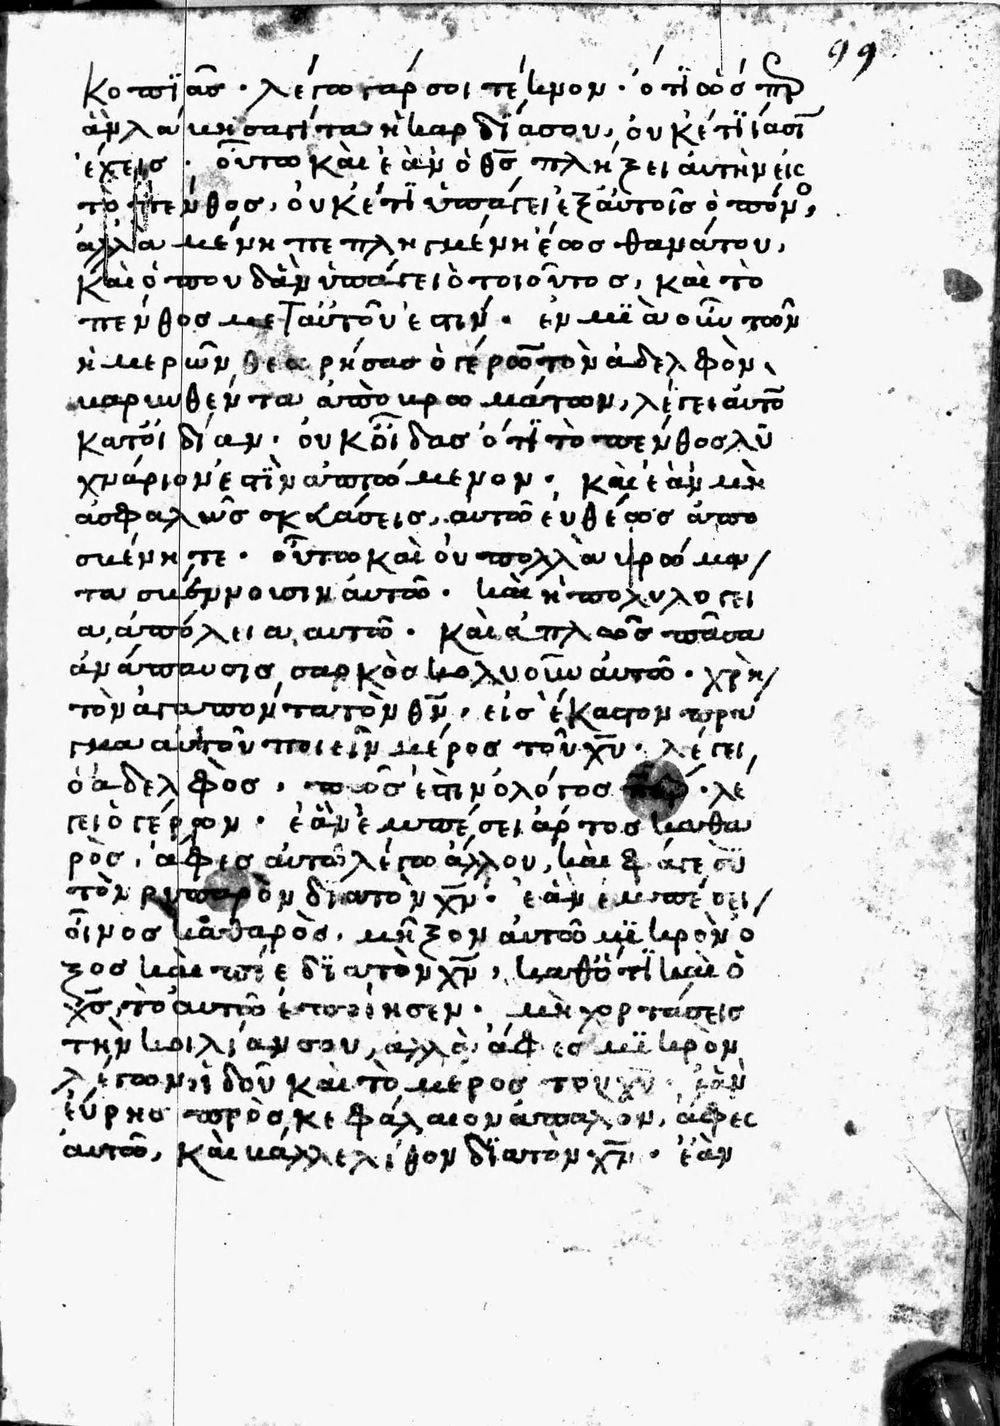 99
κοπϊᾶς · λέγω γάρ σοι τέκνον · ὅτϊ ὡς ὁ π̅η̅ρ
ἀνλάκησας τα ἡ καρδΐασου, οὐκέτϊ ϊασϊν
ἔχεις · οὕτω καὶ ἐὰν ὁ θ̅ς̅ πλήξει αὐτὴν εἰς
τὸ πένθος, οὐκέτϊ ὑπάγει ἐξ αὐτοῖς ὁ πόνος,
ἀλλὰ μένη πεπληγμένη ἕως θανάτου,
καὶ ὅπου δἂν ὑπάγει ὁ τοιοῦτος, καὶ τὸ
πένθος μετ αὐτοῦ ἐστιν · ἐν μϊᾶ οὖν τῶν
ἡμερῶν θεωρήσας ὁ γέρων τὸν ἀδελφὸν
καρυκθέντα ἀπὸ βρωμάτων, λέγει αὐτῶ
κατϊδίαν · οὐκ οἶδας ὅτϊ τὸ πένθος λύ
χνάριον ἐστϊν ἁπτώμενον · καὶ ἐὰν μὴ
ἀσφαλῶς σκεπάσεις, αὐτῶ εὐθέως ἀπο
σβένηται · οὕτω καὶ οὐ πολλὰ βρώμα
τα σβέννοισιν αὐτῶ · καὶ ἡ πολυλογεί
α, ἀπόλεια αὐτῶ · καὶ ἁπλῶς πᾶσα
ἀνάπαυσις σαρκὸς κολύουν αὐτῶ · χρὴ
τὸν ἀγαπόντα τὸν θ̅ν̅, εἰς ἕκαστον πρα
γμα αὐτοῦ ποιεῖν μέρος τοῦ χ̅υ̅ · λέγει,
ὁ ἀδελφὸς, πῶς ἐστιν ὁ λόγος · λέ
γει ὁ γέρων · ἐὰν ἐμπέσει ἄρτος καθα
ρὸς, ἄφες αὐτῶ λέγω ἄλλου, καὶ φάγε σϋ
τὸν ρυπαρὸν διατὸν χ̅ν̅ · ἐὰν ἐμπέσει
οἶνος καθαρὸς, μῆξον αὐτῶ μϊκρὸν ὄ
ξος καὶ πίε δϊατὸν χ̅ν̅, καθότϊ καὶ ὁ
χ̅ς̅ τὸ αὐτῶ ἐποίησεν · μὴ χορτάσεις
τὴν κοιλίαν σου, ἀλλὰ ἄφες μϊκρὸν
λέγων ἰδοῦ καὶ τὸ μέρος του χ̅υ̅ · ἐὰν
εὕρης πρὸς κεφάλαιον ἁπαλὸν, ἄφες
αὐτῶ, καὶ βάλλε λίθον δϊατὸν χ̅ν̅ · ἐὰν